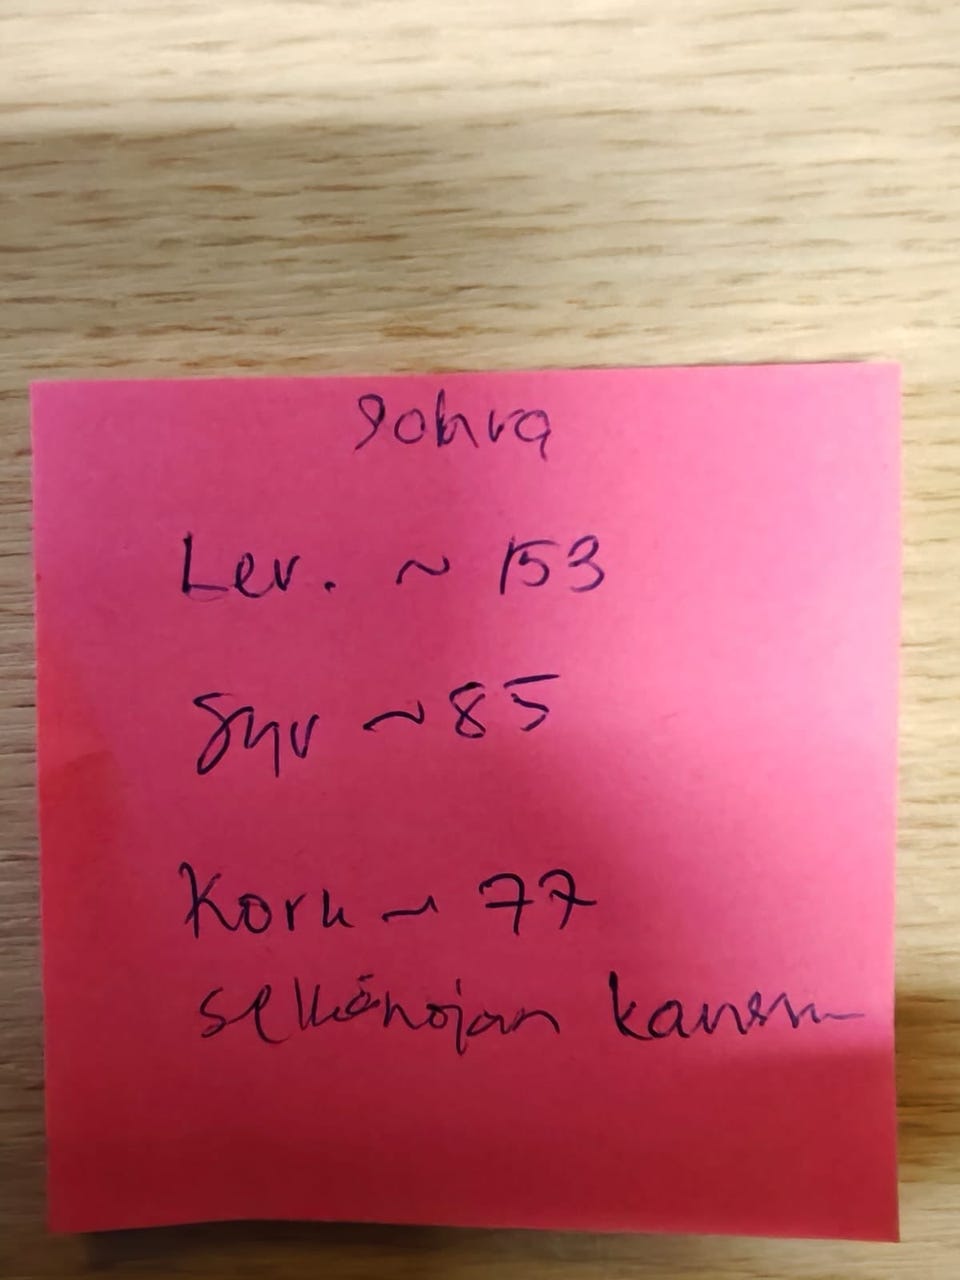 Sohva
Lev. ~ 153
Syv ~ 85
Kork ~ 77
selkänojan kanssa